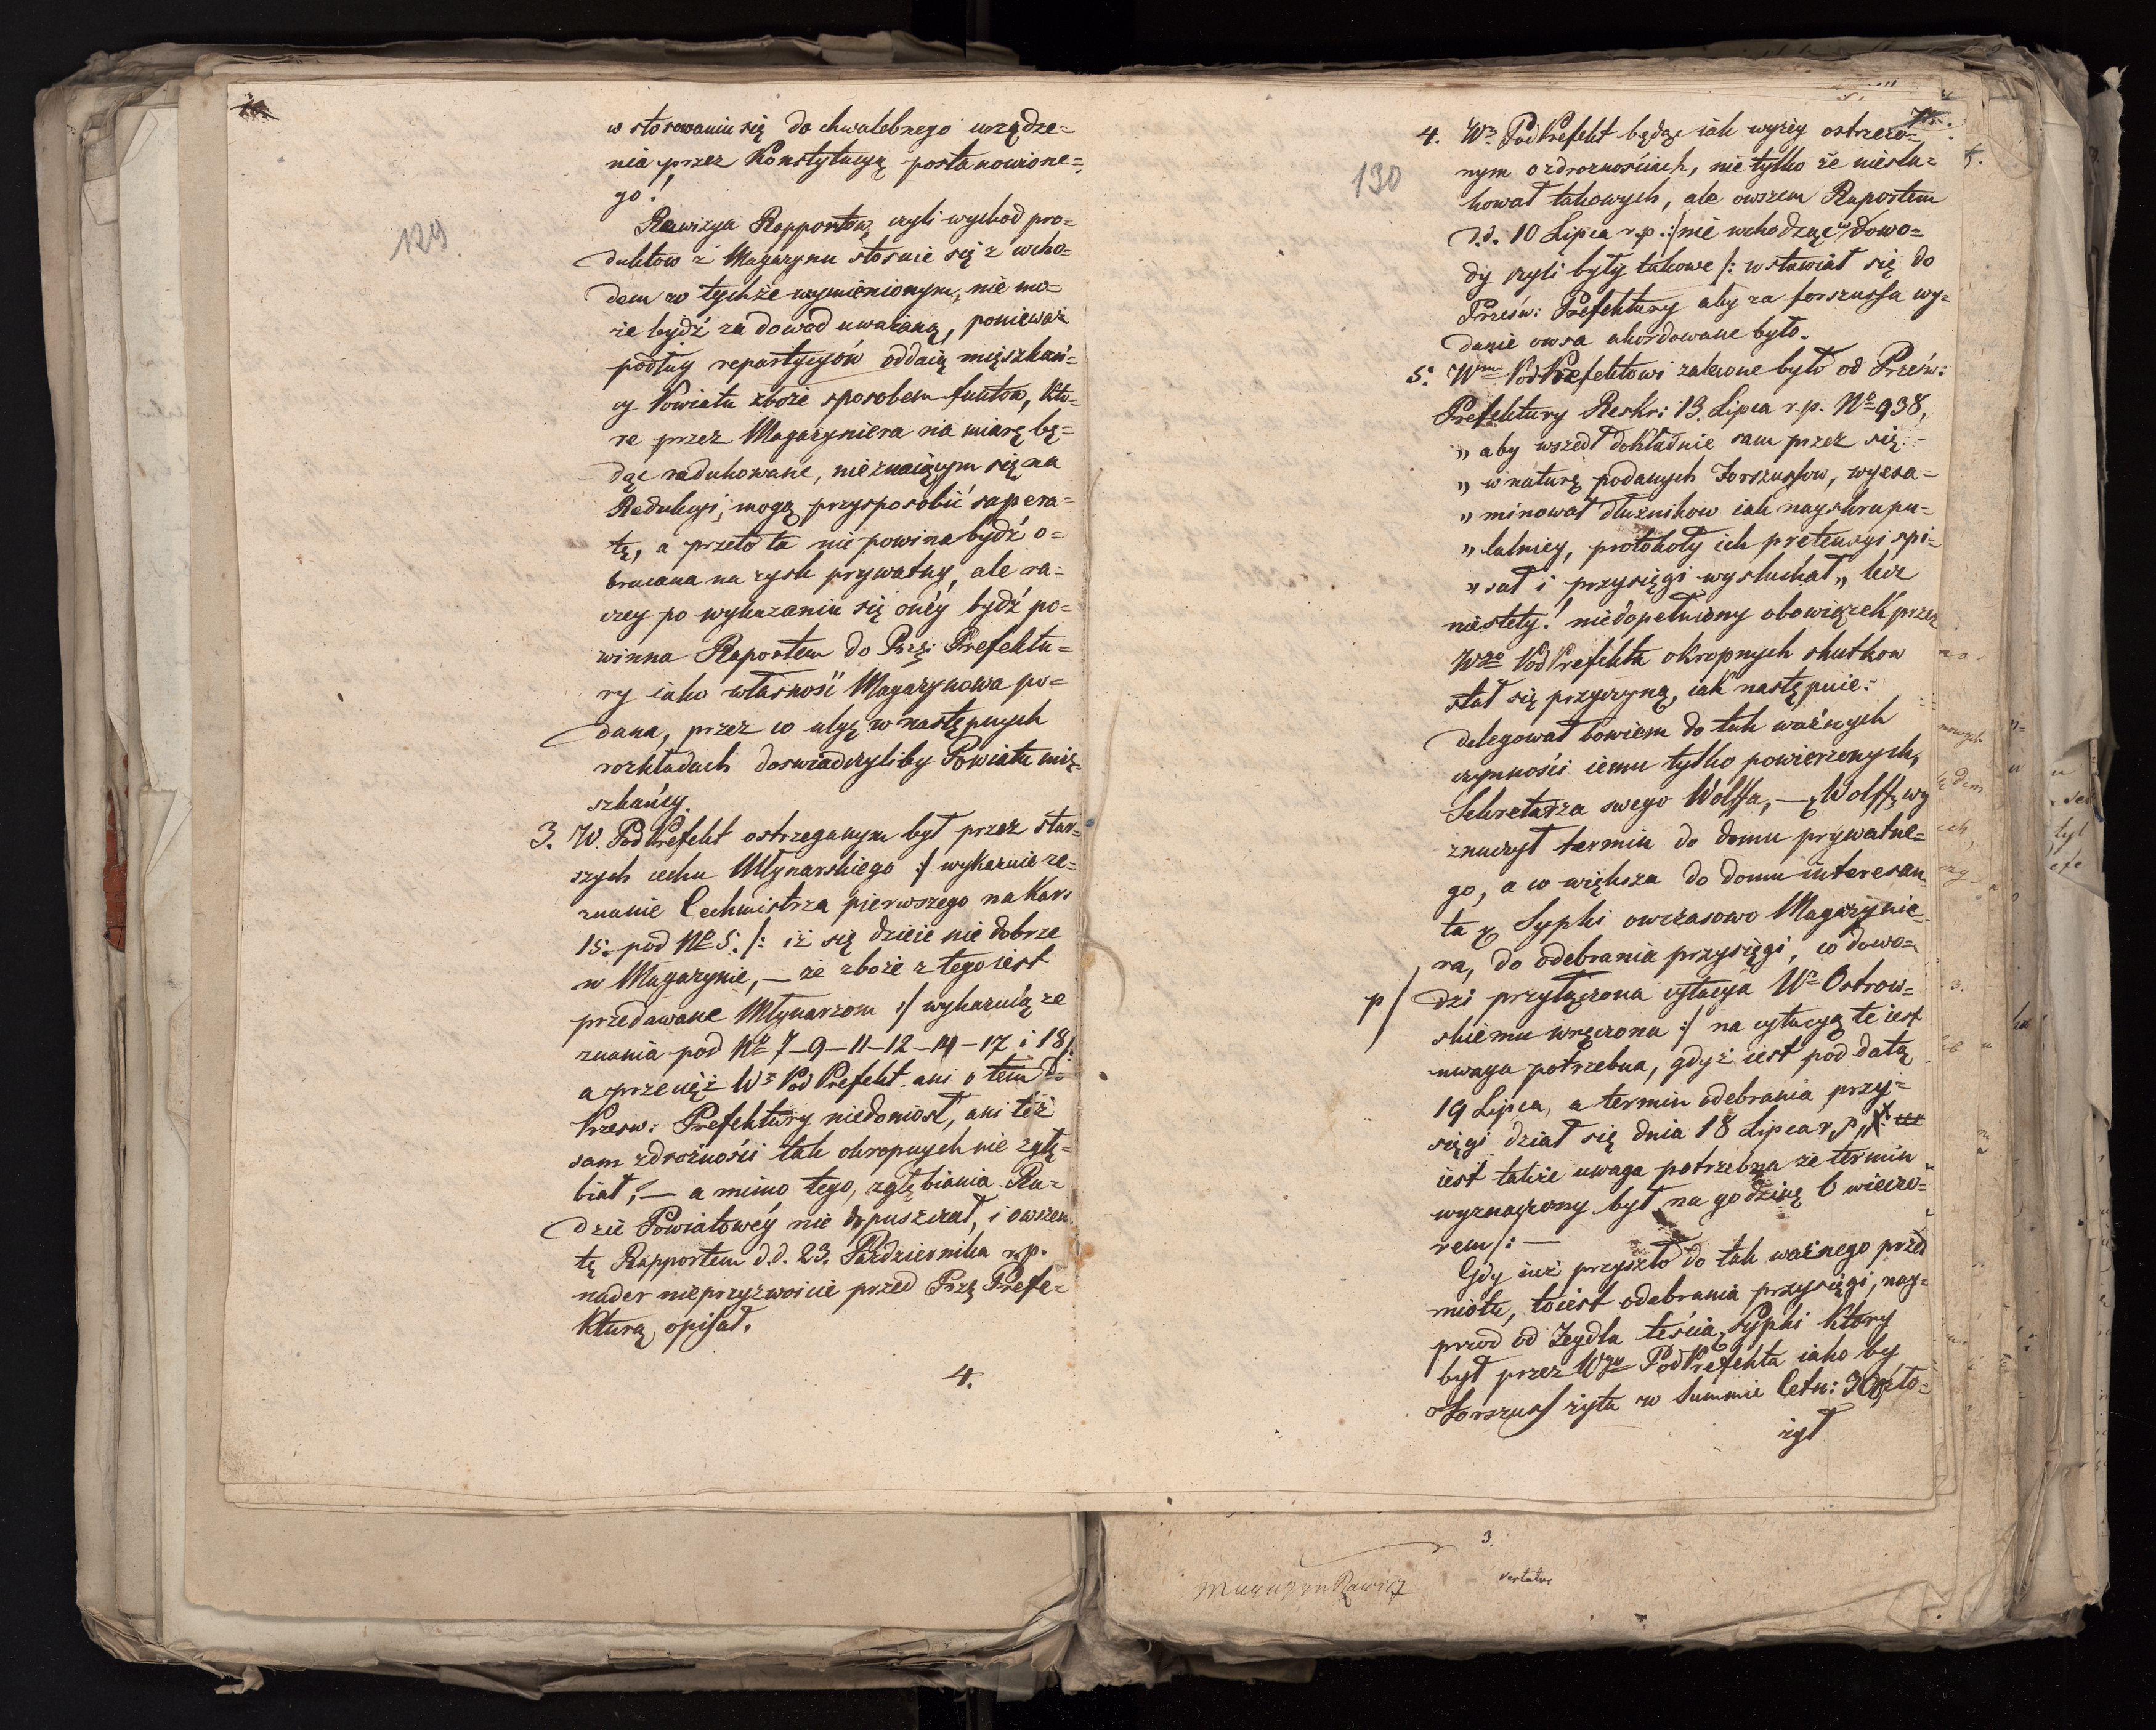 129.
w stosowaniu się do chwalebnego urządze=
nia przez Konstytucyą postanowione=
go!
Rewizya Rapportow, czyli wychod pro=
duktow z Magazynu stosuie się z wcho=
dem w tychże wymienionym, nie mo=
że bydź za dowod uważaną, ponieważ
podług repartycyow oddaią mięszkań=
cy Powiatu zboże sposobem funtow, kto=
re przez Magazyniera na miarę bę=
dąc redukowane, nieznaiącym się na
Redukcyi, mogą przysposobić supera=
tę, a przeto ta nie powina bydź o=
bracana na zysk prywatny, ale ra=
czey po wykazaniu się onéy bydź po=
winna Raportem do Prze: Prefektu=
ry iako własność Magazynowa po=
dana, przez co ulgę w następnych
rozkładach doswiadczyliby Powiatu mię=
szkańcy.
3. W. PodPrefekt ostrzeganym był przez star=
szych cechu Młynarskiego :/ wykazuie ze=
znanie Cechmistrza pierwszego na Kar:
15. pod No 5. /: iż się dzieie nie dobrze
w Magazynie, — że zboże z tego iest
przedawane Młynarzom :/ wykazuią ze
znania pod No 7–9–11–12–14–17 i 18/:
a przecięż Wy PodPrefekt ani o tem do
Przesw: Prefektury niedoniosł, ani też
sam zdrożności tak okropnych nie zgłę=
biał, — a mimo tego, zgłębiania Ra=
dzie Powiatowéy nie dopuszczał, i owszem
tę Rapportem d.d. 23. Października r.p.
nader nieprzyzwoicie przed Prze Prefe=
kturą opisał.
4.
130
4. Wy PodPrefekt będąc iak wyżey ostrzeżo=
nym o zdrożnościach, nie tylko że niesłu=
chował takowych, ale owszem Raportem
d.d. 10 Lipca r.p. :/ nie wchodząc w dowo=
dy czyli były takowe /: wstawiał się do
Prześw: Prefektury aby za forszussa wy=
danie owsa akordowane było.
5. Wmu PodPrefektowi zalecone było od Prześw:
Prefektury Reskr: 13. Lipca r.p. No 938,
„ aby wszedł dokładnie sam przez się
„ w naturę podanych Forszussow, wyexa=
„ minował dłużnikow iak nayskrupu=
„ latniey, protokoły ich pretensyi spi=
„ sał i przysięgi wysłuchał „ lecz
niestety! niedopełniony obowiązek przez
Wgo PodPrefekta okropnych skutkow
stał się przyczyną, iak następuie:
delegował bowiem do tak ważnych
czynności iemu tylko powierzonych,
Sekretarza swego Wolffa, — Wolff wy
znaczył termin do domu prywatne=
go, a co większa do domu interesan=
ta Sypki owczasowo Magazynie=
ra, do odebrania przysięgi, co dowo=
p/ dzi przyłączona cytacya Wu Ostrow=
skiemu wręczona :/ na cytacyą te iest
uwaga potrzebna, gdyż iest pod datą
19 Lipca, a termin odebrania przy=
sięgi dział się dnia 18 Lipca r.p.
iest także uwaga potrzebna że termin
wyznaczony był na godzinę 6 wieczo=
rem /: —
Gdy iuż przyszło do tak ważnego przed
miotu, toiest odebrania przysięgi, nay=
przod od Zeydla teścia Sypki ktory
był przez Wgo PodPrefekta iako by
Forszuss żyta w Summie Cetn: 300 zło=
żył
3.
Magazyn Rawicz